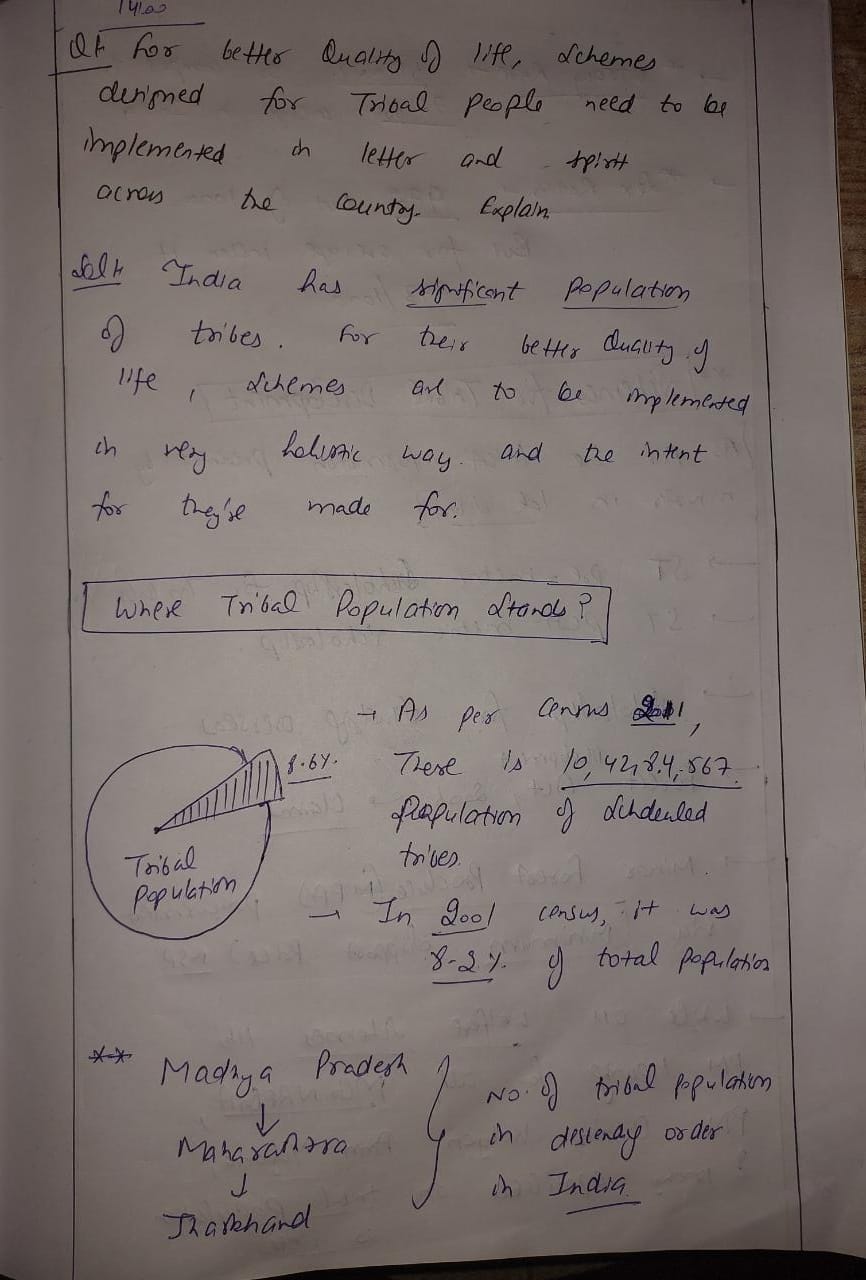 Q1 For better Quality of life, Schemes
designed for Tribal People need to be
implemented in letter and spirit
across the country. Explain
Sol: India has significant population
of tribes. For their better Quality of
life, Schemes are to be implemented
in very holistic way. and the intent
for they're made for.
Where Tribal Population Stands?
→ As per Census 2011,
8.6%. There is 10,42,84,567
population of Schdeuled
tribes.
Tribal
Population
→ In 2001 census, it was
8.2%. of total population
** Madhya Pradesh
↓
Maharashtra
↓
Jharkhand
No. of tribal population
in descendg order
in India